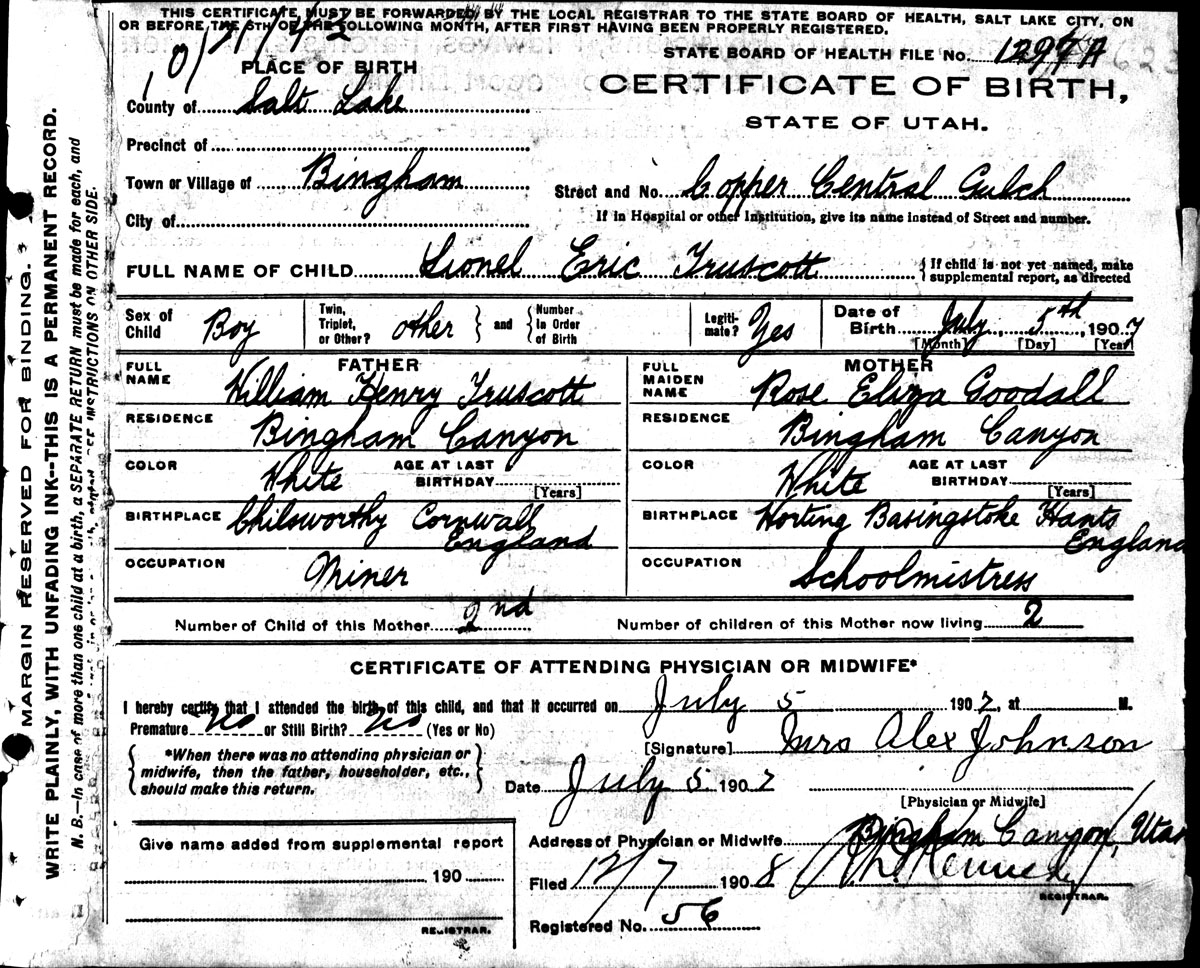 THIS CERTIFICATE MUST BE FORWARDED BY THE LOCAL REGISTRAR TO THE STATE BOARD OF HEALTH, SALT LAKE CITY, ON
OR BEFORE THE 5TH OF THE FOLLOWING MONTH, AFTER FIRST HAVING BEEN PROPERLY REGISTERED.
STATE BOARD OF HEALTH FILE No. 1297A
PLACE OF BIRTH
CERTIFICATE OF BIRTH,
County of Salt Lake
STATE OF UTAH.
Precinct of
Town or Village of Bingham
Street and No. Copper Central Gulch
City of
If in Hospital or other Institution, give its name instead of Street and number.
FULL NAME OF CHILD Lionel Eric Truscott
If child is not yet named, make
supplemental report, as directed
Sex of Child Boy
Twin, Triplet, or Other? other
and
Number In Order of Birth
Legiti-mate? Yes
Date of Birth July 5th, 1907
[Month] [Day] [Year]
FATHER
FULL NAME William Henry Truscott
RESIDENCE Bingham Canyon
COLOR White AGE AT LAST BIRTHDAY
[Years]
BIRTHPLACE Chilsworthy Cornwall
England
OCCUPATION Miner
MOTHER
FULL MAIDEN NAME Rose Eliza Goodall
RESIDENCE Bingham Canyon
COLOR White AGE AT LAST BIRTHDAY
[Years]
BIRTHPLACE Worting Basingstoke Hants
England
OCCUPATION Schoolmistress
Number of Child of this Mother 2nd
Number of children of this Mother now living 2
CERTIFICATE OF ATTENDING PHYSICIAN OR MIDWIFE*
I hereby certify that I attended the birth of this child, and that it occurred on July 5 1907, at M.
Premature No or Still Birth? No (Yes or No)
*When there was no attending physician or
midwife, then the father, householder, etc.,
should make this return.
[Signature] Mrs Alex Johnson
Date July 5 1907
[Physician or Midwife]
Give name added from supplemental report
190
REGISTRAR.
Address of Physician or Midwife Bingham Canyon, Utah
Filed 12/7 1908
REGISTRAR.
Registered No. 56
MARGIN RESERVED FOR BINDING.
WRITE PLAINLY, WITH UNFADING INK--THIS IS A PERMANENT RECORD.
N. B.--In case of more than one child at a birth, a SEPARATE RETURN must be made for each, and
SEE INSTRUCTIONS ON OTHER SIDE.